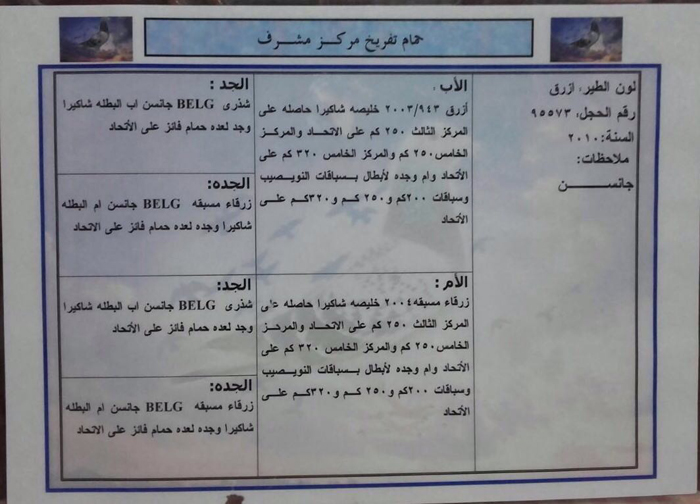 حمام تفريخ مركز مشرف
لون الطير: ازرق
رقم الحجل: ٩٥٥٧٣
السنة: ٢٠١٠
ملاحظات:
جانسن
الأب:
أزرق ٢٠٠٣/٩٤٣ خليصه شاكيرا حاصله على
المركز الثالث ٢٥٠ كم على الاتحاد والمركز
الخامس ٢٥٠ كم والمركز الخامس ٣٢٠ كم على
الأتحاد وام وجده لأبطال بسباقات النويصيب
وسباقات ٢٠٠كم و٢٥٠ كم و٣٢٠كم على
الأتحاد
الجد:
شذرى BELG جانسن اب البطله شاكيرا
وجد لعده حمام فائز على الأتحاد
الجده:
زرقاء مسبقه BELG جانسن ام البطله
شاكيرا وجده لعده حمام فائز على الاتحاد
الأم:
زرقاء مسبقه٢٠٠٤ خليصه شاكيرا حاصله على
المركز الثالث ٢٥٠ كم على الاتحاد والمركز
الخامس٢٥٠ كم والمركز الخامس ٣٢٠ كم على
الأتحاد وام وجده لأبطال بسباقات النويصيب
وسباقات ٢٠٠كم و٢٥٠ كم و٣٢٠كم على
الأتحاد
الجد:
شذرى BELG جانسن اب البطله شاكيرا
وجد لعده حمام فائز على الأتحاد
الجده:
زرقاء مسبقه BELG جانسن ام البطله
شاكيرا وجده لعده حمام فائز على الاتحاد